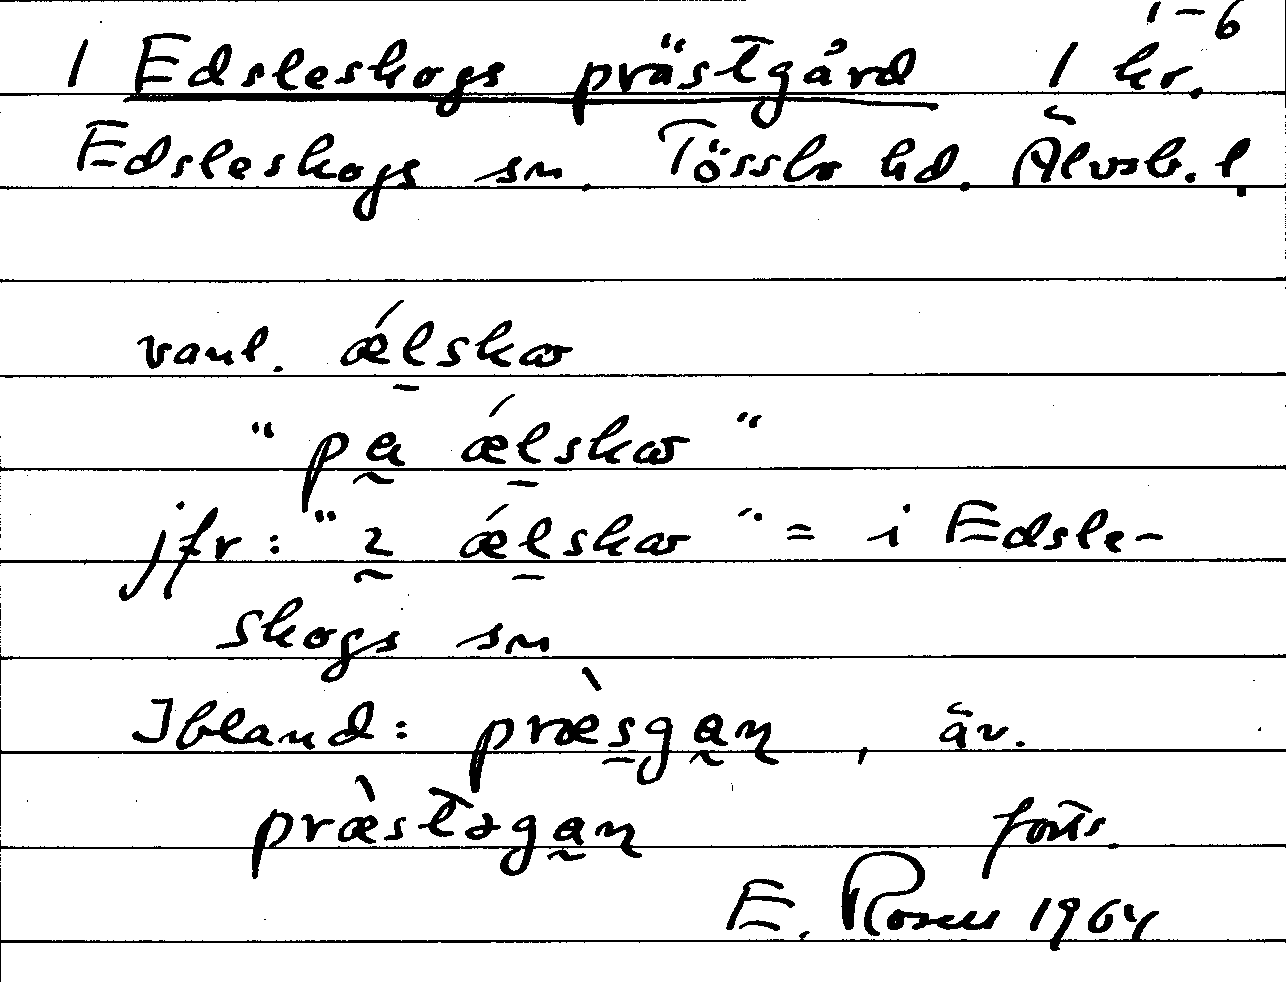 1–6
1 Edsleskogs prästgård 1 kr.
Edsleskogs sn. Tössbo hd. Älvsb. l.
vanl. ǽl̠skaω
"pa̰ ǽl̠skaω"
jfr: "ɪ̰ ǽl̠skaω" = i Edsle-
skogs sn
Ibland: præ̀s̠ga̰ɳ, äv.
præ̀stəga̰ɳ forts.
E. Rosell 1964